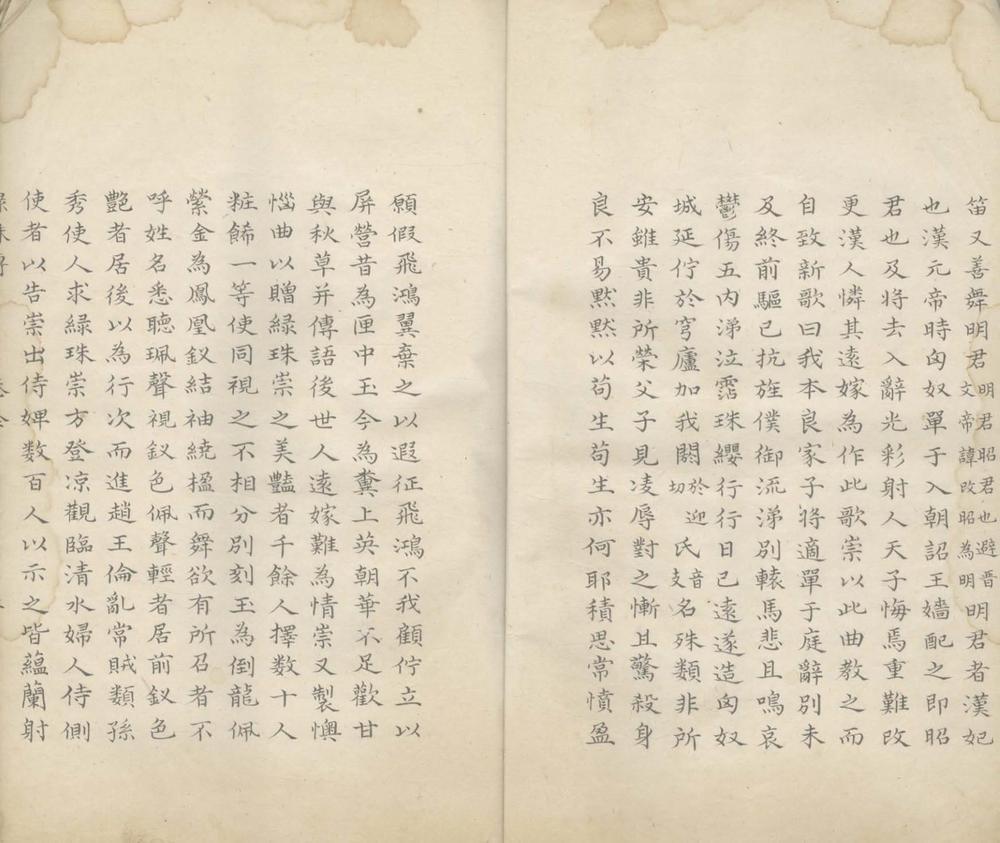 笛又善舞明君明君昭君也避晋文帝諱改昭為明明君者漢妃
也漢元帝時匈奴單于入朝詔王嬙配之即昭
君也及将去入辭光彩射人天子悔焉重難改
更漢人憐其遠嫁為作此歌崇以此曲教之而
自致新歌曰我本良家子将適單于庭辭別未
及終前驅已抗旌僕御流涕別轅馬悲且鳴哀
鬱傷五内涕泣霑珠纓行行日已遠遂造匈奴
城延佇於穹廬加我閼於切迎氏音支名殊類非所
安雖貴非所榮父子見凌辱對之慚且驚殺身
良不易黙黙以苟生苟生亦何耶積思常憤盈
願假飛鴻翼棄之以遐征飛鴻不我顧佇立以
屏營昔為匣中玉今為糞上英朝華不足歡甘
與秋草并傳語後世人遠嫁難為情崇又製懊
惱曲以贈緑珠崇之美豔者千餘人擇数十人
粧餙一等使同視之不相分別刻玉為倒龍佩
縈金為鳳凰釵結袖繞楹而舞欲有所召者不
呼姓名悉聴珮聲視釵色佩聲輕者居前釵色
艷者居後以為行次而進趙王倫亂常賊類孫
秀使人求緑珠崇方登凉觀臨清水婦人侍側
使者以告崇出侍婢数百人以示之皆蘊蘭射